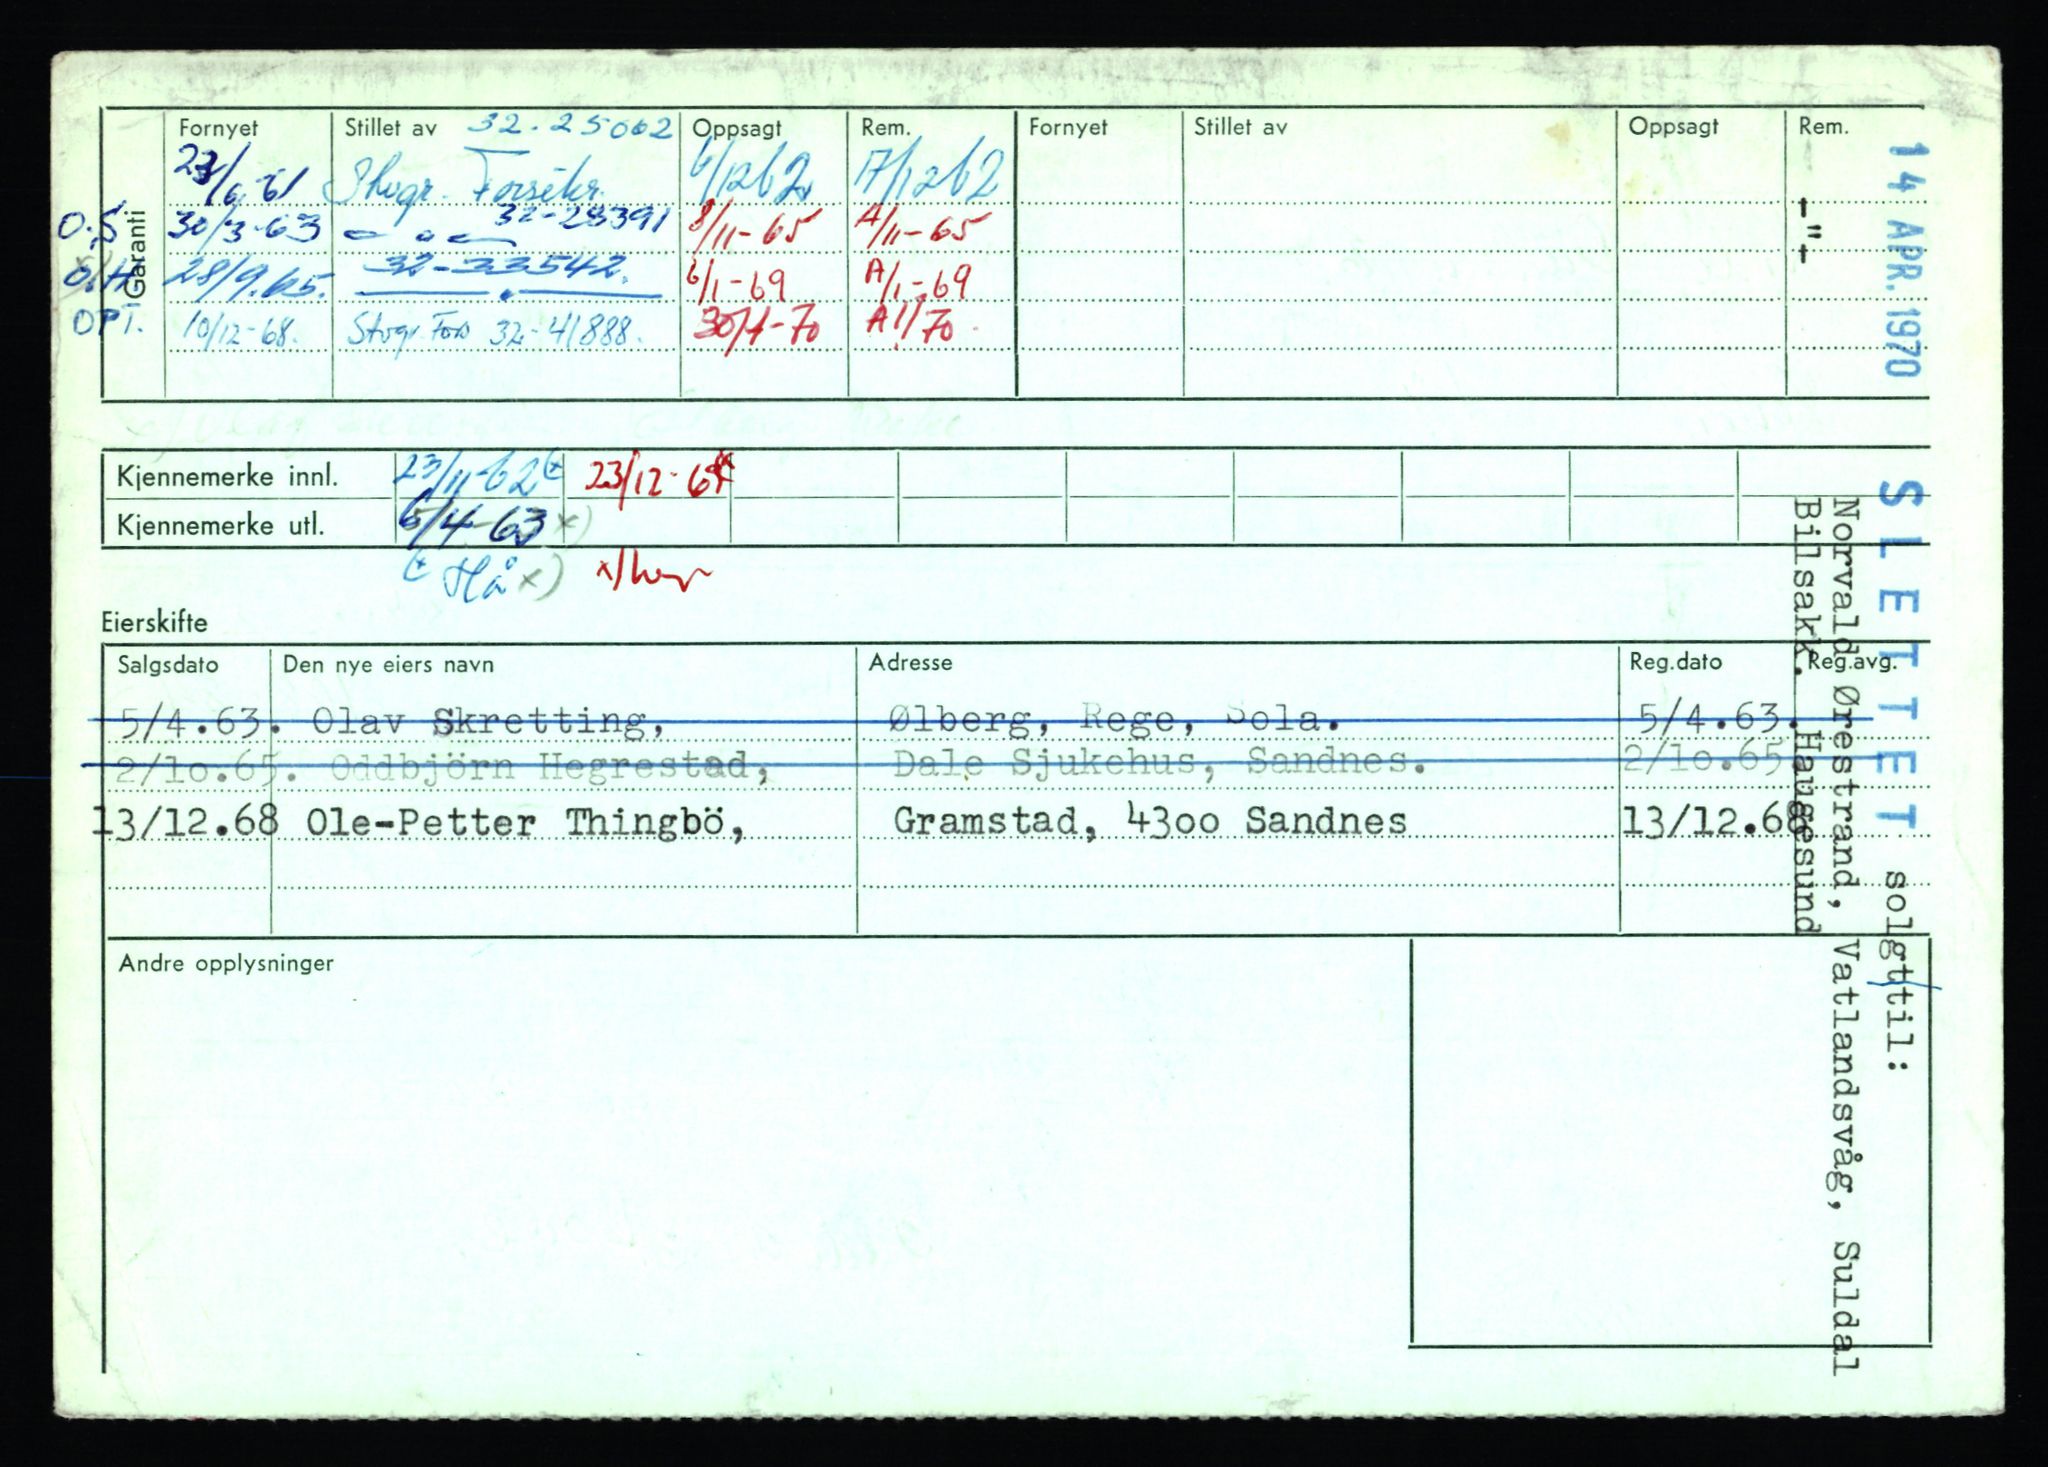 Garanti
Fornyet Stillet av 32-25062 Oppsagt Rem. Fornyet Stillet av Oppsagt Rem.
/6-61 Forsikr. 6/12 62 17/12 62
O.S 30/3-63 32-28391 8/11-65 A/11-65
O.H. 28/9.65. 32-33542. 6/1-69 A/1-69
OPT. 10/12-68. Storgr. Fors 32-41888. 30/1-70 A 1/70.
Kjennemerke innl. 23/11-62 23/12-69
Kjennemerke utl. 6/4-63 x)
Hå x)
Eierskifte
Salgsdato Den nye eiers navn Adresse Reg.dato Reg.avg.
5/4.63. Olav Skretting, Ølberg, Rege, Sola. 5/4.63.
2/1o.65. Oddbjörn Hegrestad, Dale Sjukehus, Sandnes. 2/1o.65
13/12.68 Ole-Petter Thingbö, Gramstad, 43oo Sandnes 13/12.68
Andre opplysninger
14 APR. 1970 SLETTET solgt til:
Norvald Ørestrand, Vatlandsvåg, Suldal
-"- Bilsakk. Haugesund